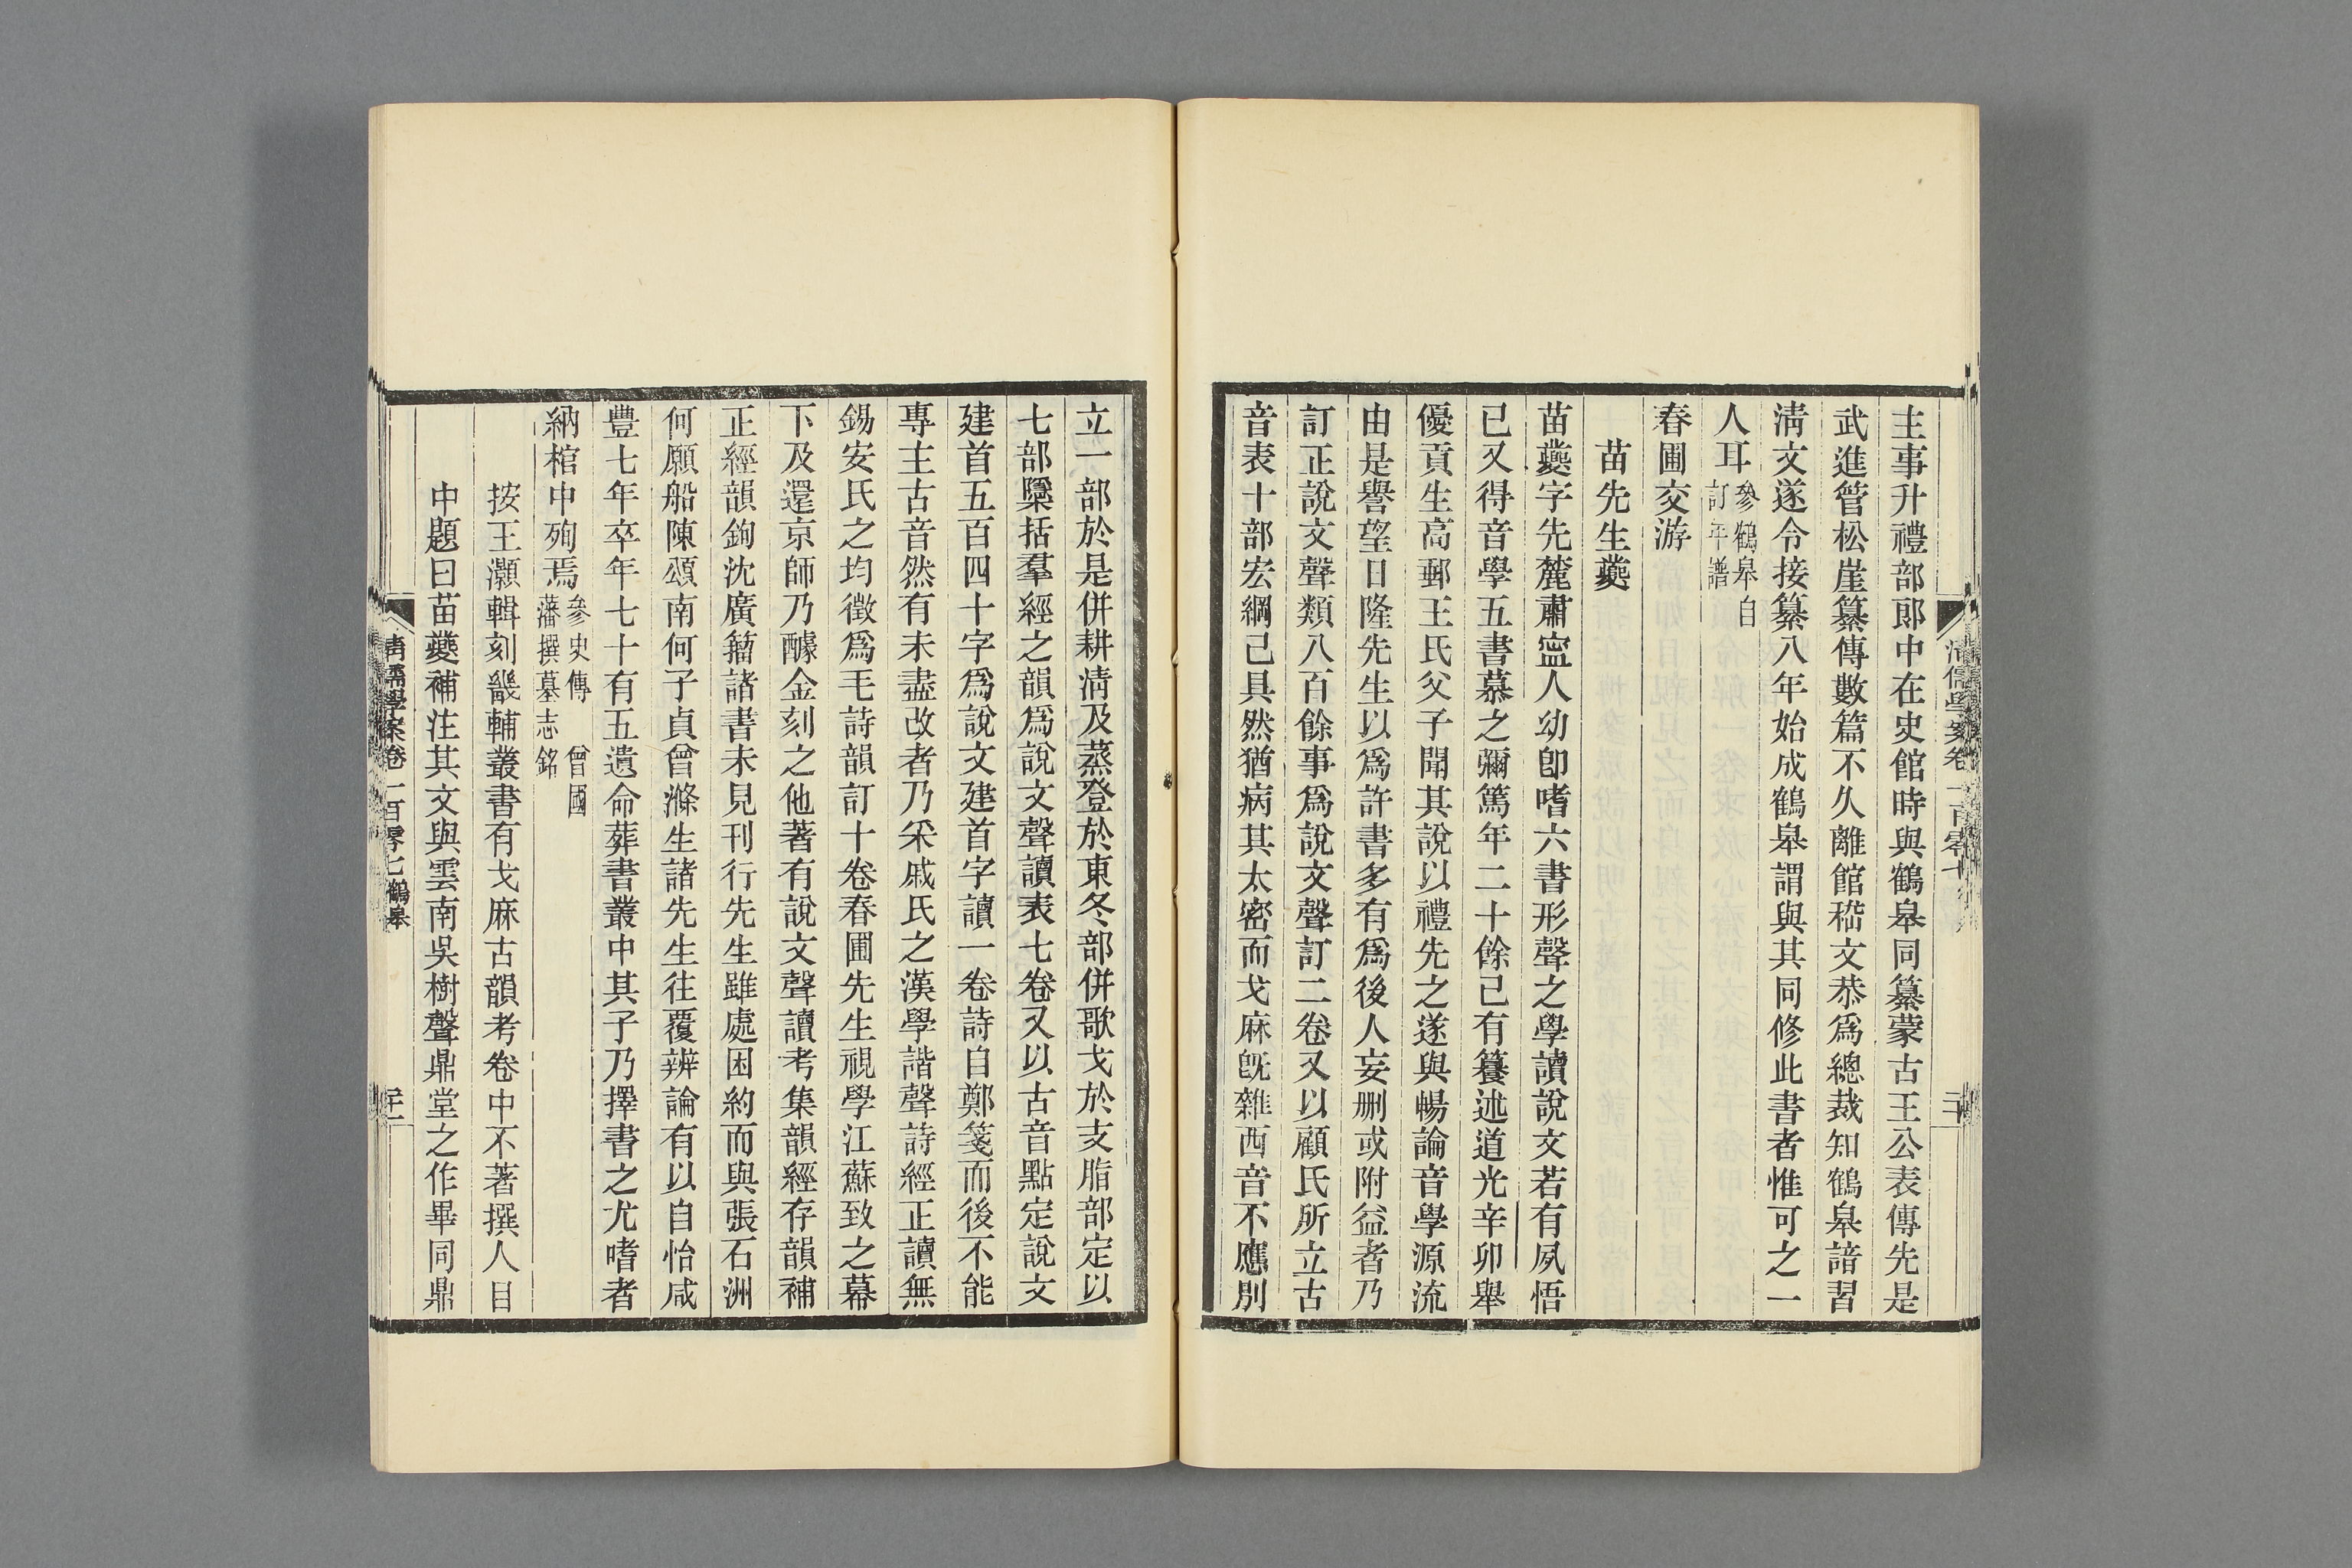 主事升禮部郎中在史館時與鶴皋同纂蒙古王公表傳先是
武進管松崖纂傳數篇不久離館嵇文恭爲總裁知鶴皋諳習
淸文遂令接纂八年始成鶴皋謂與其同修此書者惟可之一
人耳參鶴皋自訂年譜
春圃交游
苗先生夔
苗夔字先麓肅寍人幼卽嗜六書形聲之學讀說文若有夙悟
已又得音學五書慕之彌篤年二十餘已有籑述道光辛卯舉
優貢生高郵王氏父子聞其說以禮先之遂與暢論音學源流
由是譽望日隆先生以爲許書多有爲後人妄刪或附益者乃
訂正說文聲類八百餘事爲說文聲訂二卷又以顧氏所立古
音表十部宏綱已具然猶病其太密而戈麻旣雜西音不應別
立一部於是併耕淸及蒸登於東冬部併歌戈於支脂部定以
七部檃括羣經之韻爲說文聲讀表七卷又以古音點定說文
建首五百四十字爲說文建首字讀一卷詩自鄭箋而後不能
專主古音然有未盡改者乃采戚氏之漢學諧聲詩經正讀無
錫安氏之均徵爲毛詩韻訂十卷春圃先生視學江蘇致之幕
下及還京師乃醵金刻之他著有說文聲讀考集韻經存韻補
正經韻鉤沈廣籀諸書未見刊行先生雖處困約而與張石洲
何願船陳頌南何子貞曾滌生諸先生往覆辨論有以自怡咸
豐七年卒年七十有五遺命葬書叢中其子乃擇書之尤嗜者
納棺中殉焉參史傳　曾國藩撰墓志銘
按王灝輯刻畿輔叢書有戈麻古韻考卷中不著撰人目
中題曰苗夔補注其文與雲南吳樹聲鼎堂之作畢同鼎
淸儒學案卷一百零七　鶴皋